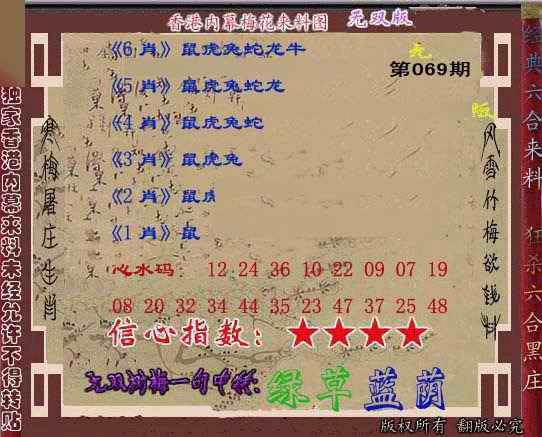 香港内幕梅花来料图 无双版
《6 肖》鼠虎兔蛇龙牛
无
第069期
《5 肖》鼠虎兔蛇龙
版
《4 肖》鼠虎兔蛇
《3 肖》鼠虎兔
《2 肖》鼠虎
《1 肖》鼠
心水码: 12 24 36 10 22 09 07 19
08 20 32 34 44 35 23 47 37 25 48
信心指数: ★★★★
无双浏梅一句中特:绿草蓝荫
独家香港内幕来料未经允许不得转贴
寒梅屠庄生肖
风雪竹梅欲钱料
经典六合来料 狂杀六合黑庄
版权所有 翻版必究